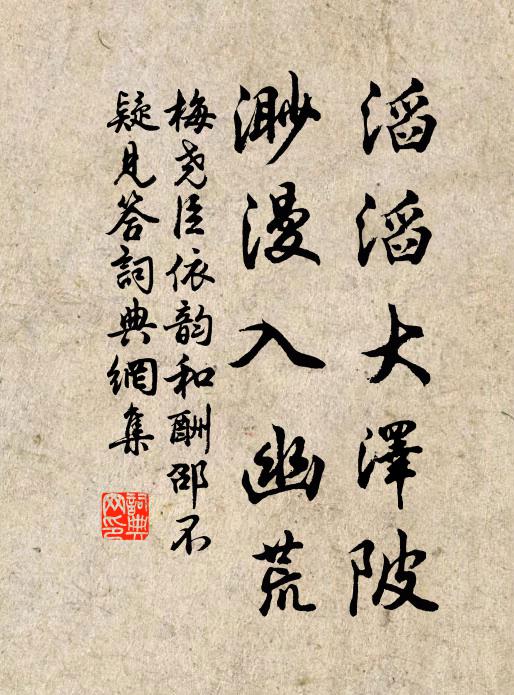 滔滔大澤陂
渺漫入幽荒
梅堯臣依韵和酬邵不
疑見答詞典網集
詞典
网印